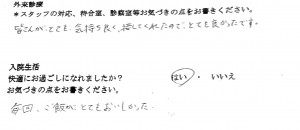 外来診療
*スタッフの対応、待合室、診察室等お気づきの点をお書きください。
皆さんが、とても、気持ち良く、接してくれたので、とても良かったです。
入院生活
快適にお過ごしになれましたか? はい ・ いいえ
お気づきの点をお書きください。
毎回、ご飯が、とてもおいしかった。